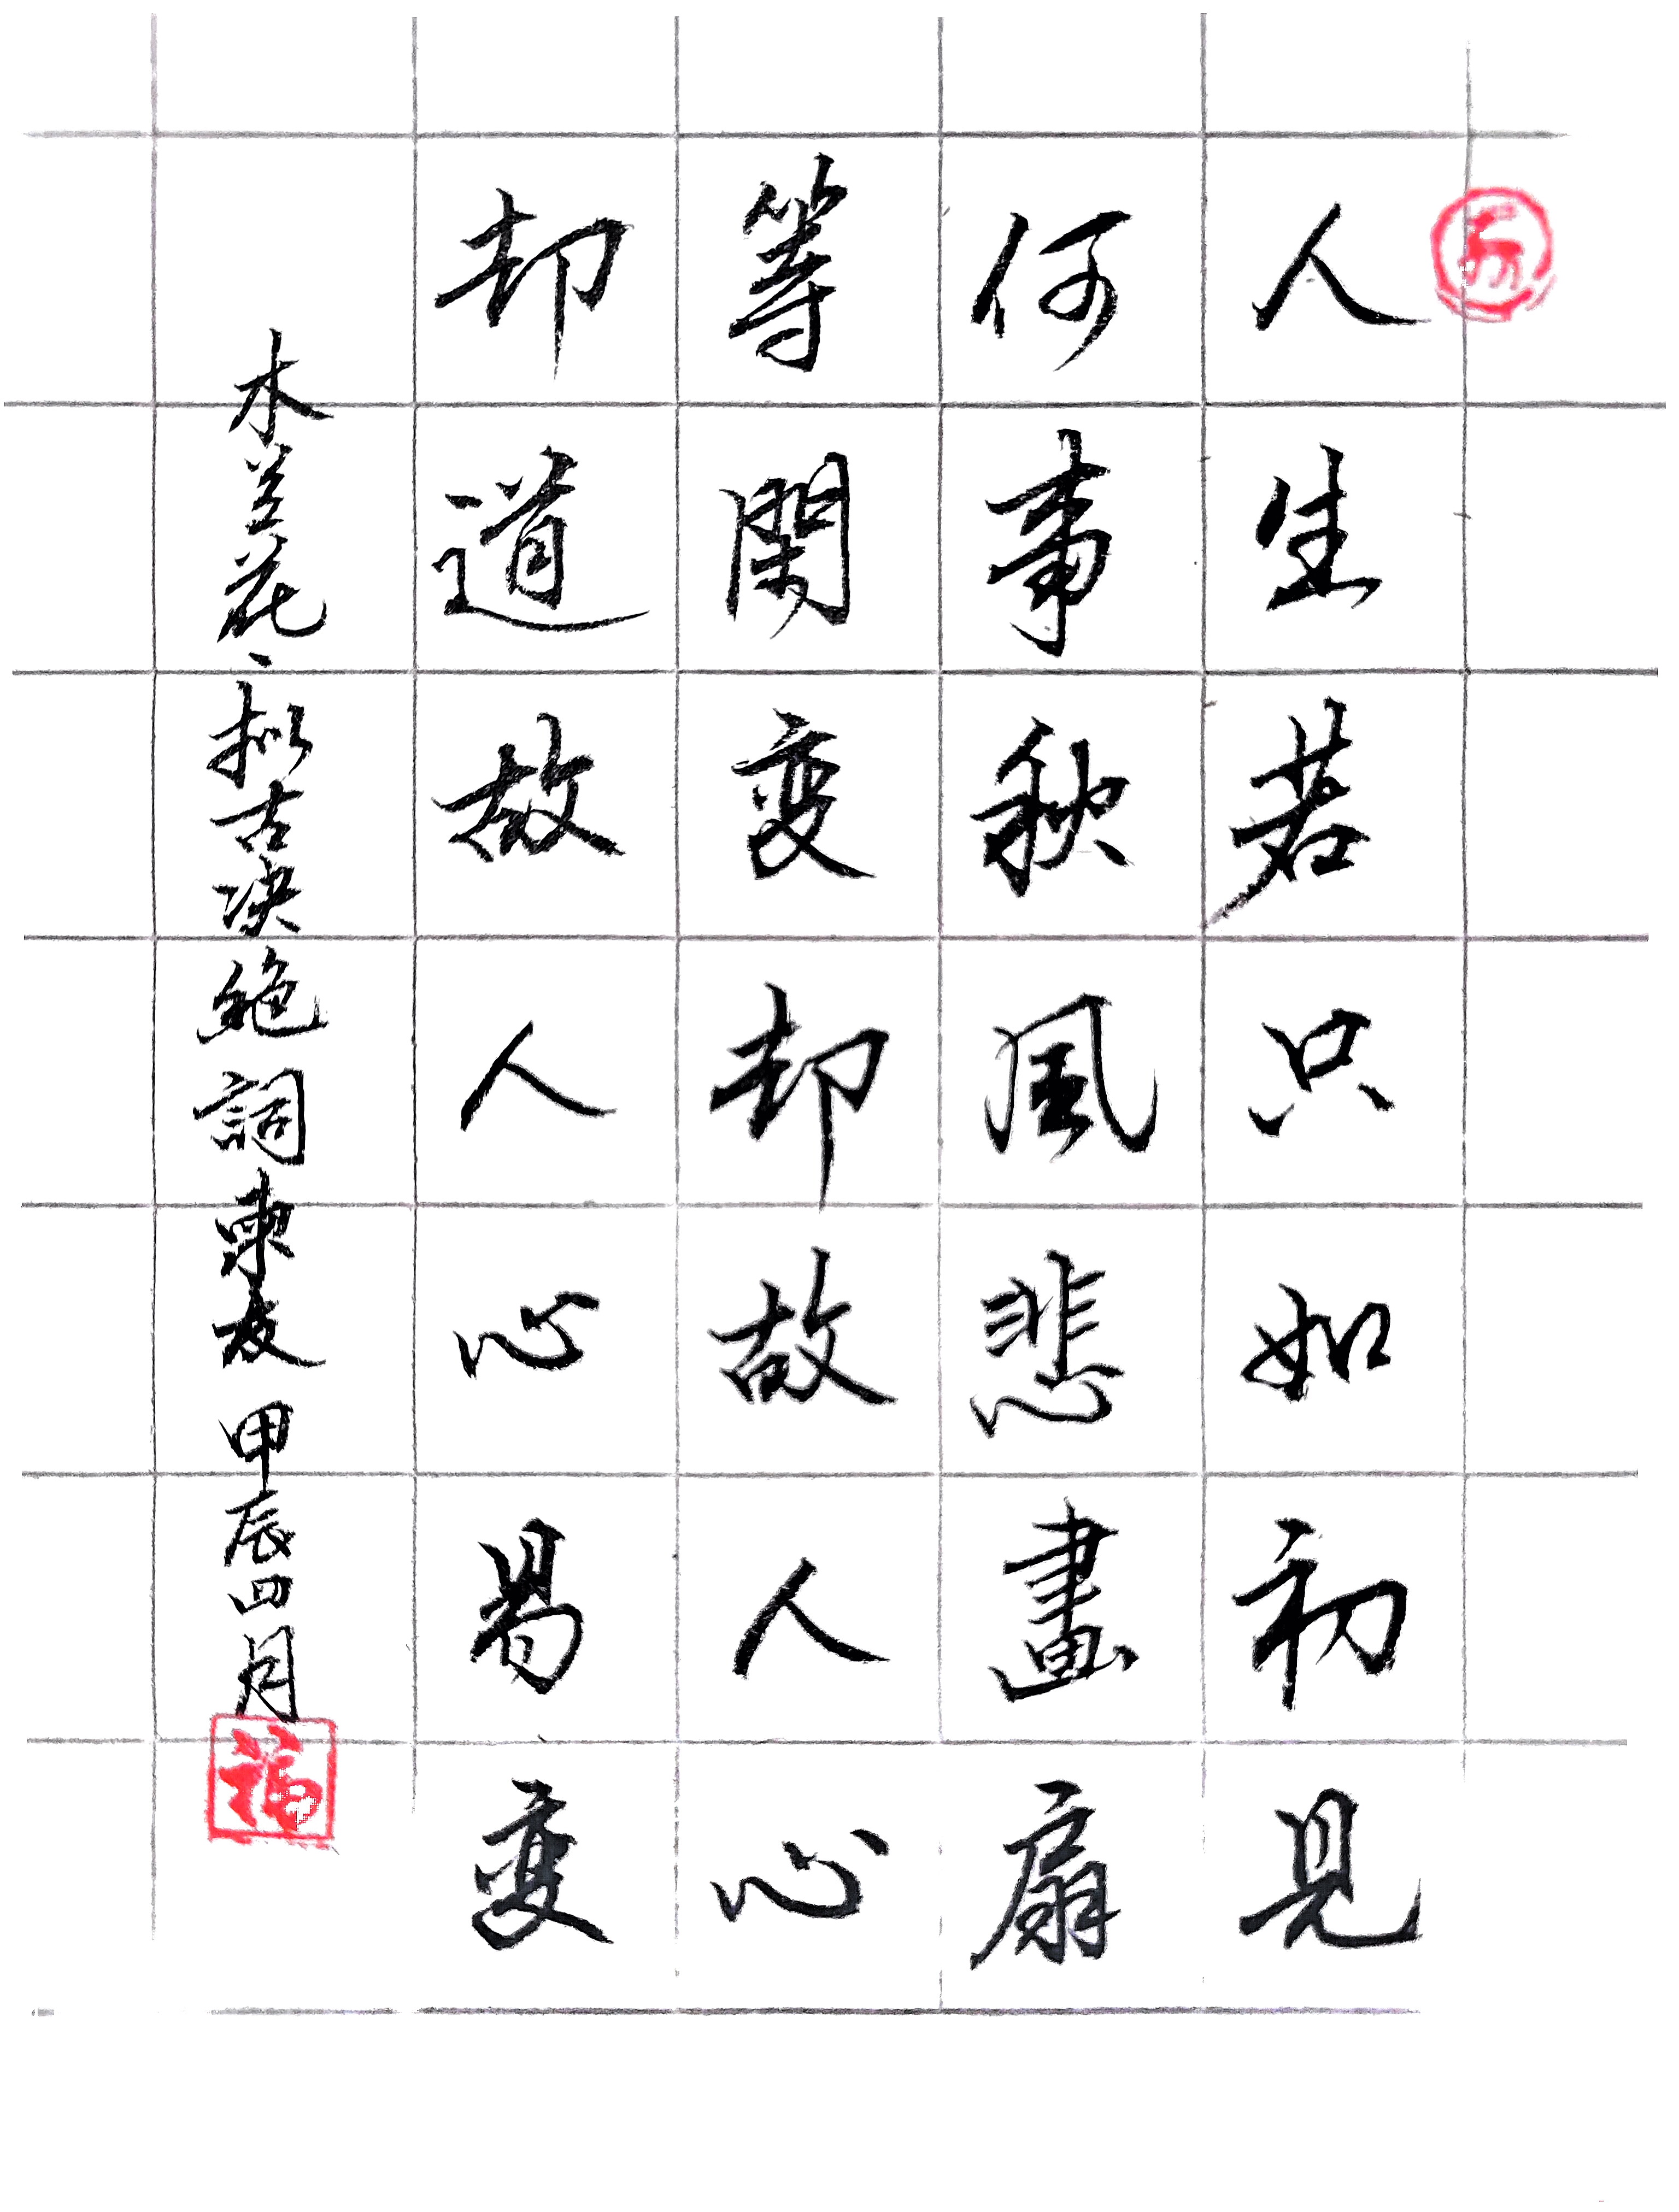 人生若只如初見
何事秋風悲畫扇
等閑變却故人心
却道故人心易變
木兰花、拟古决絕詞柬友 甲辰四月
福